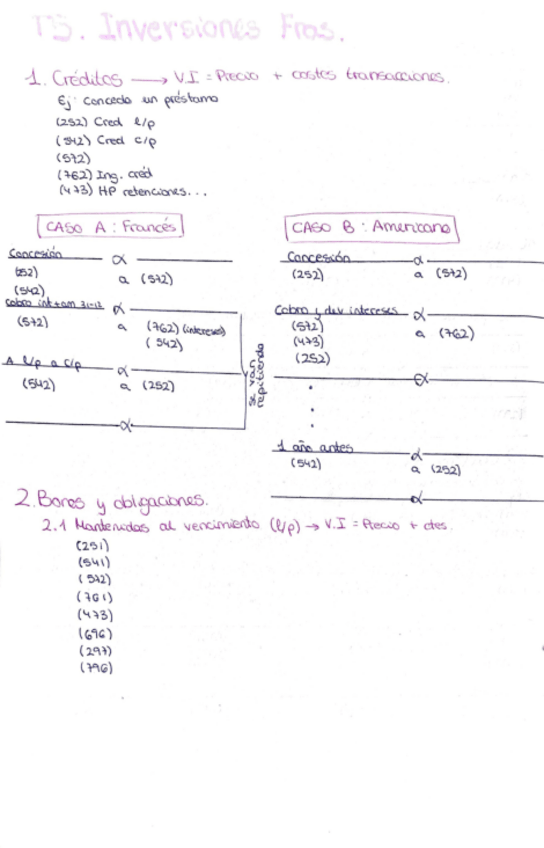 T5. Inversiones Fras.
1. Créditos → V.I = Precio + costes transacciones.
Ej: Concedo un préstamo
(252) Cred l/p
(542) Cred c/p
(572)
(762) Ing. créd
(473) HP retenciones...
CASO A: Francés
Concesión α
(252) a (572)
(542)
Cobro int+am 31-12 α
(572) a (762) (intereses)
(542)
A l/p a c/p α
(542) a (252)
α
se van repitiendo
CASO B: Americano
Concesión α
(252) a (572)
Cobro y dev intereses α
(572) a (762)
(473)
(252)
α
.
.
.
1 año antes α
(542) a (252)
α
2. Bonos y obligaciones.
2.1 Mantenidas al vencimiento (l/p) → V.I = Precio + ctes.
(251)
(541)
(572)
(761)
(473)
(696)
(297)
(796)